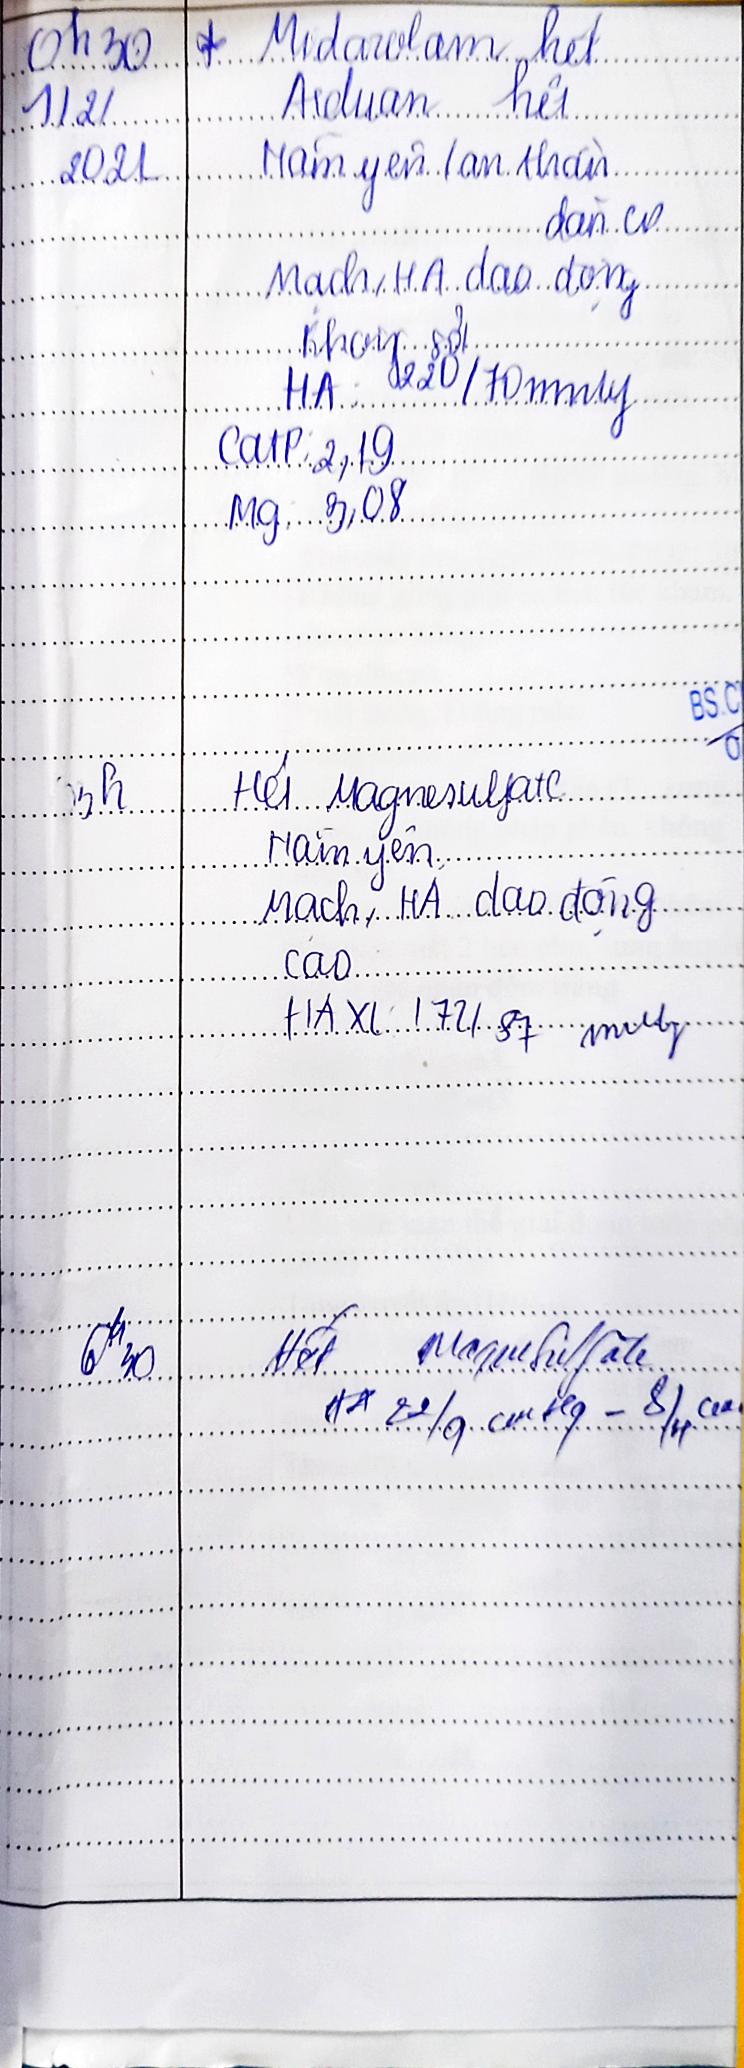 0h30 + Midazolam hết
1/2/ Arduan hết
2021 Nằm yên/an thần
dãn cơ
Mạch, HA dao động
HA: 220/70mmHg
CaTP: 2,19
Mg: 3,08
BS.C
3h Hết Magnesulfate
Nằm yên,
Mạch, HA dao động
cao
HAXL: 172/87 mmHg
6h30 Hết Magnesulfate
HA 22/9 cmHg - 8/4 cm